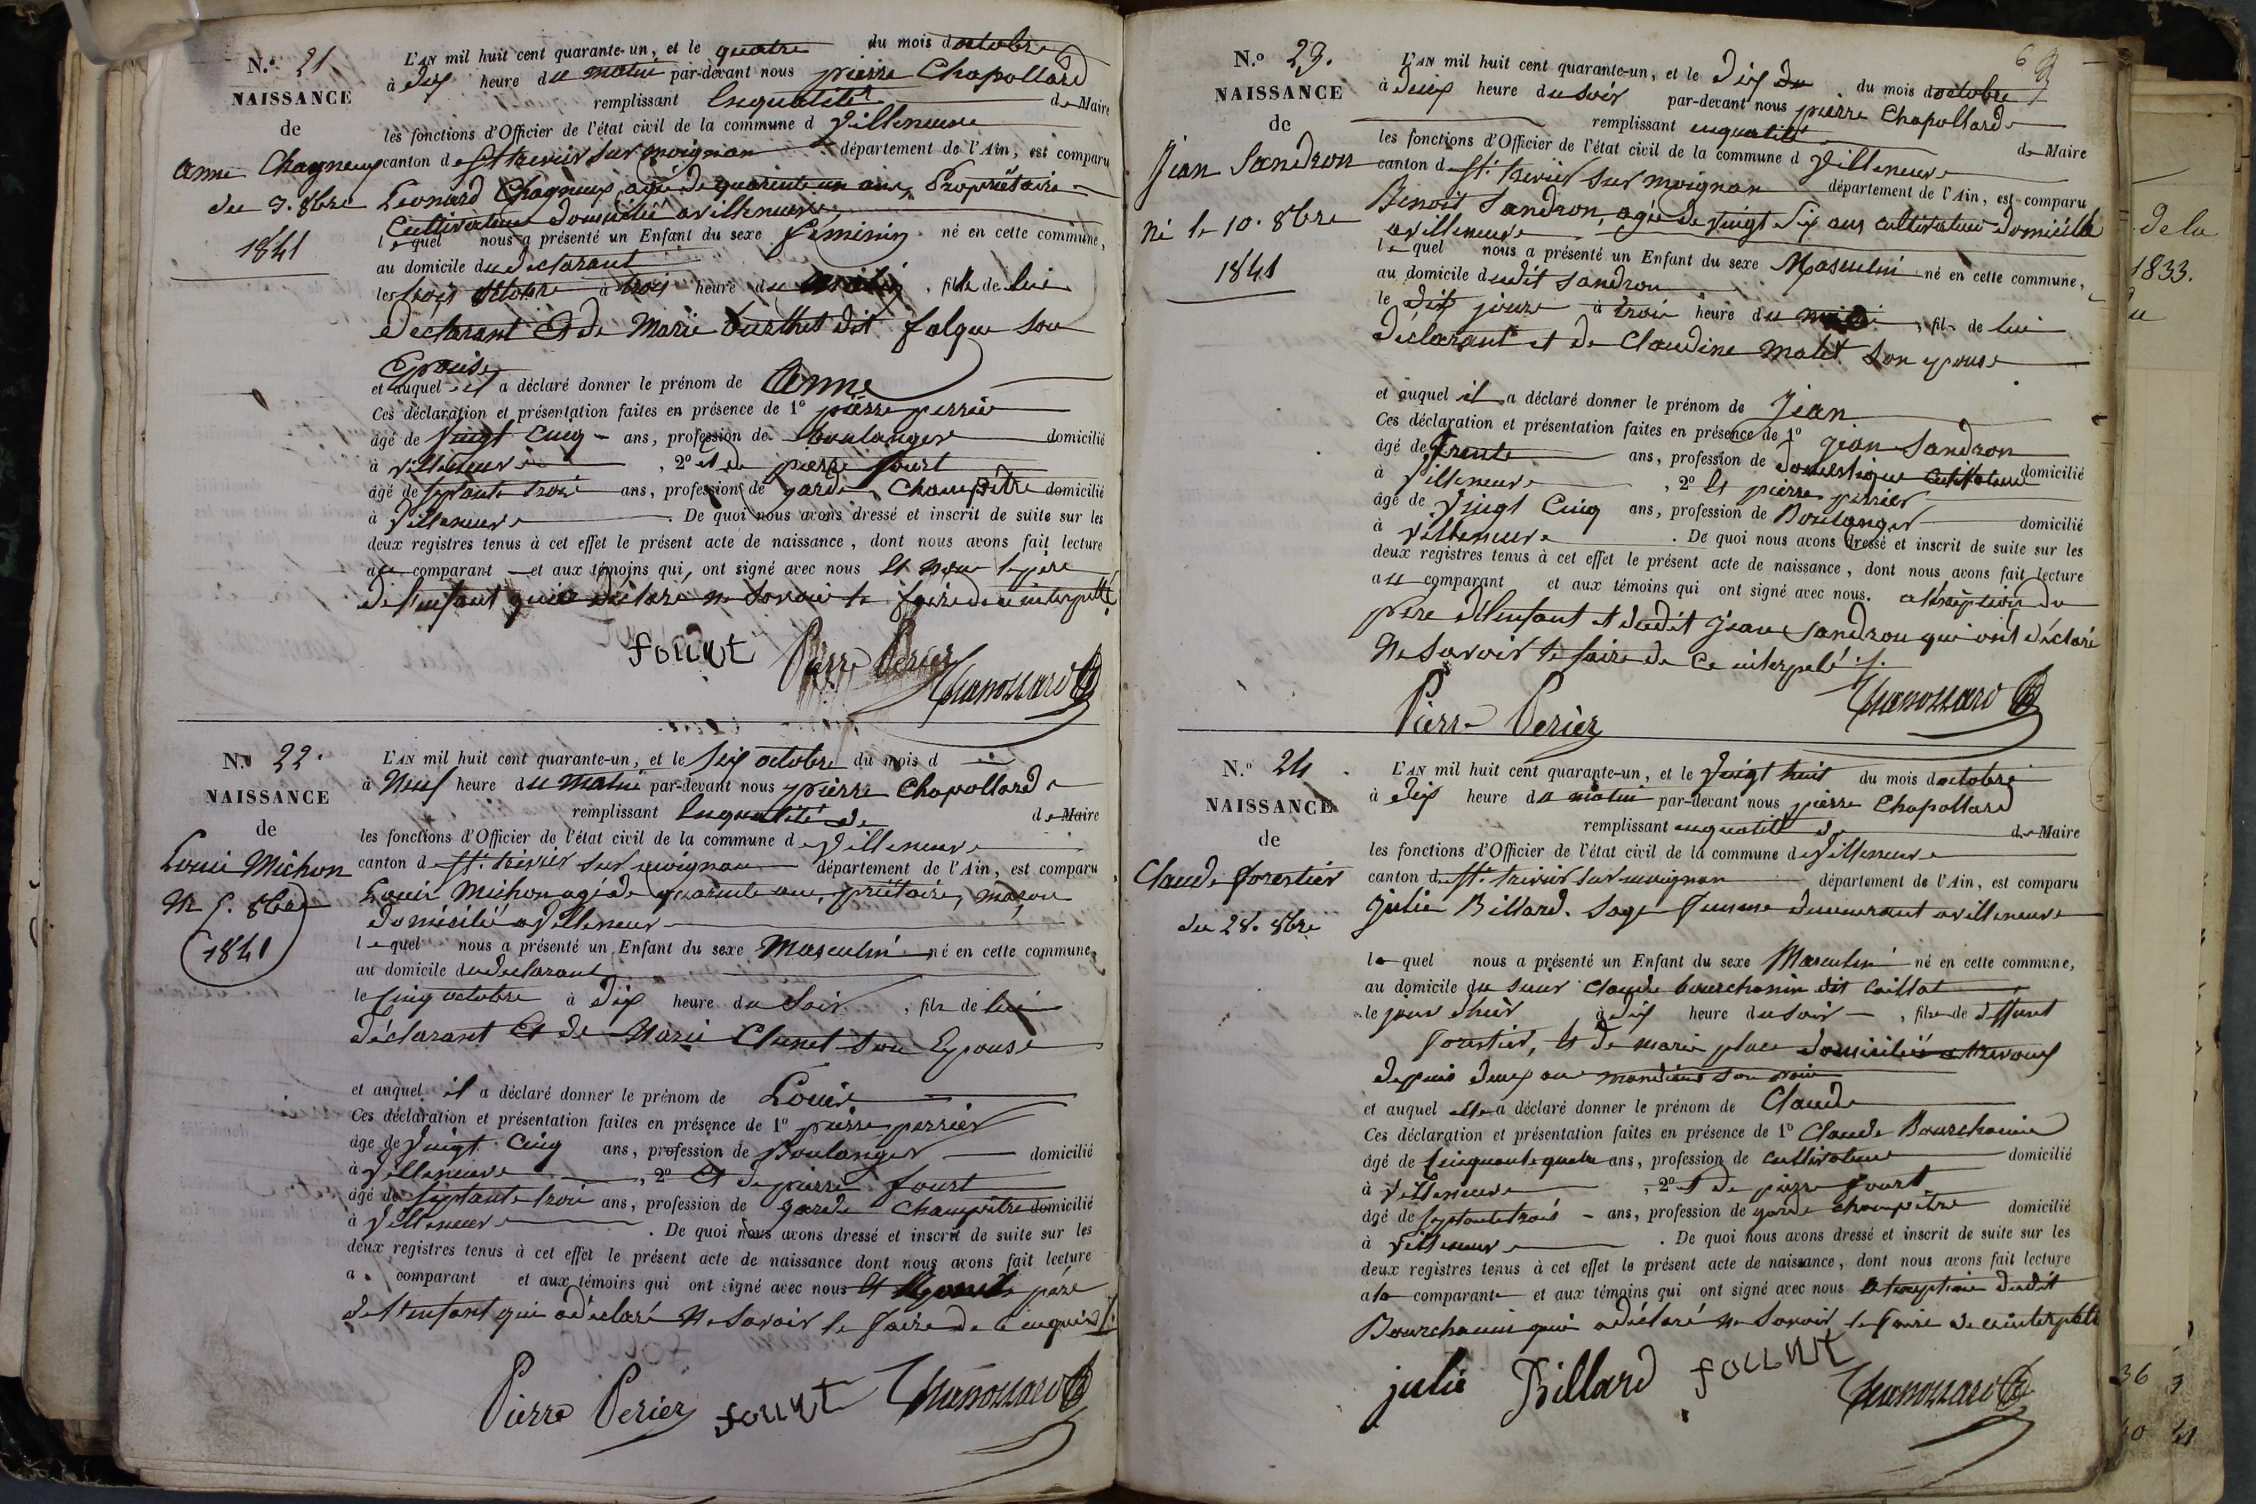 N.º 21
NAISSANCE
de
Anne Chagneux
du 3. 8bre
1841
L'AN mil huit cent quarante-un, et le quatre du mois doctobre
à dix heure du matin par-devant nous pierre Chapollard
remplissant Enqualité de Maire
les fonctions d'Officier de l'état civil de la commune d villeneuve
canton de St trivier sur moignan département de l'Ain, est comparu
Léonard Chagneux agé de quarente un ans, Propriétaire
Cultivateur domicilié a villeneuve
lequel nous a présenté un Enfant du sexe féminin né en cette commune,
au domicile du declarant
les trois octobre à trois heure du matin, fille de lui
declarant Et de Marie burthet dit falque son
Epouse
et auquel il a déclaré donner le prénom de Anne
Ces déclaration et présentation faites en présence de 1º pierre perrier
âgé de vingt Cinq ans, profession de boulanger domicilié
à villeneuve, 2º et de pierre fourt
âgé de septante trois ans, profession de garde Champêtre domicilié
à villeneuve. De quoi nous avons dressé et inscrit de suite sur les
deux registres tenus à cet effet le présent acte de naissance, dont nous avons fait lecture
au comparant et aux témoins qui, ont signé avec nous Et non le père
de l'enfant qui a déclaré ne savoir le faire de ce interpellé
fourt Pierre Perier Chapollard
N.º 22.
NAISSANCE
de
Louis Michon
né 5. 8bre
1841
L'AN mil huit cent quarante-un, et le six octobre du mois d
à Neuf heure du matin par-devant nous pierre Chapollard
remplissant Enqualité de de Maire
les fonctions d'Officier de l'état civil de la commune de villeneuve
canton de St. trivier sur moignan département de l'Ain, est comparu
Louis Michon agé de quarente ans, maçon
domicilié a villeneuve
lequel nous a présenté un Enfant du sexe Masculin né en cette commune,
au domicile du declarant
le Cinq octobre à dix heure du Soir, fils de lui
déclarant Et de Marie Clunet Son Epouse
et auquel il a déclaré donner le prénom de Louis
Ces déclaration et présentation faites en présence de 1º pierre perrier
âgé de vingt Cinq ans, profession de Boulanger domicilié
à villeneuve, 2º Et de pierre fourt
âgé de septante trois ans, profession de garde Champêtre domicilié
à villeneuve. De quoi nous avons dressé et inscrit de suite sur les
deux registres tenus à cet effet le présent acte de naissance dont nous avons fait lecture
a comparant et aux témoins qui ont signé avec nous Et père
de l'enfant qui a déclaré Ne Savoir le faire de ce enquis
Pierre Perier fourt Chapollard
N.º 23.
NAISSANCE
de
Jean Sandron
né le 10. 8bre
1841
L'AN mil huit cent quarante-un, et le dix du du mois doctobre
à deux heure du soir par-devant nous pierre Chapollard
remplissant enqualité de Maire
les fonctions d'Officier de l'état civil de la commune d villeneuve
canton de St. trivier sur moignan département de l'Ain, est comparu
Benoit Sandron, agée de vingt six ans cultivateur domicilié
a villeneuve
lequel nous a présenté un Enfant du sexe Masculin né en cette commune,
au domicile dudit Sandron
le dit jours à trois heure du, fils de lui
déclarant et de Claudine Malet Son epouse
et auquel il a déclaré donner le prénom de Jean
Ces déclaration et présentation faites en présence de 1º jean Sandron
âgé de trente ans, profession de domestique cultivateur domicilié
à villeneuve, 2º Et pierre perrier
âgé de vingt Cinq ans, profession de Boulanger domicilié
à villeneuve. De quoi nous avons dressé et inscrit de suite sur les
deux registres tenus à cet effet le présent acte de naissance, dont nous avons fait lecture
au comparant et aux témoins qui ont signé avec nous. alexception du
père de l'enfant et dudit jean Sandron qui ont déclaré
Ne Savoir le faire de Ce interpelé
Pierre Perier Chapollard
N.º 24
NAISSANCE
de
Claude forestier
du 28. 8bre
L'AN mil huit cent quarante-un, et le vingt huit du mois doctobre
à dix heure du matin par-devant nous pierre Chapollard
remplissant enqualité de de Maire
les fonctions d'Officier de l'état civil de la commune de villeneuve
canton de St. trivier sur moignan département de l'Ain, est comparu
Julie Billard. Sage femme demeurant a villeneuve
laquel nous a présenté un Enfant du sexe Masculin né en cette commune,
au domicile du sieur Claude bourchanin dit Caillat
le jour dhier à dix heure du soir, fils de deffunt
forestier, Et de marie place domiciliée a trevoux
depuis deux ans
et auquel elle a déclaré donner le prénom de Claude
Ces déclaration et présentation faites en présence de 1º Claude Bourchanin
âgé de Cinquante quatre ans, profession de cultivateur domicilié
à villeneuve, 2º et de pierre fourt
âgé de septante trois ans, profession de garde champêtre domicilié
à villeneuve. De quoi nous avons dressé et inscrit de suite sur les
deux registres tenus à cet effet le présent acte de naissance, dont nous avons fait lecture
a la comparante et aux témoins qui ont signé avec nous alexception dudit
Bourchanin qui a déclaré ne Savoir le faire de ce interpellé
julie Billard fourt Chapollard
de la
1833.
36